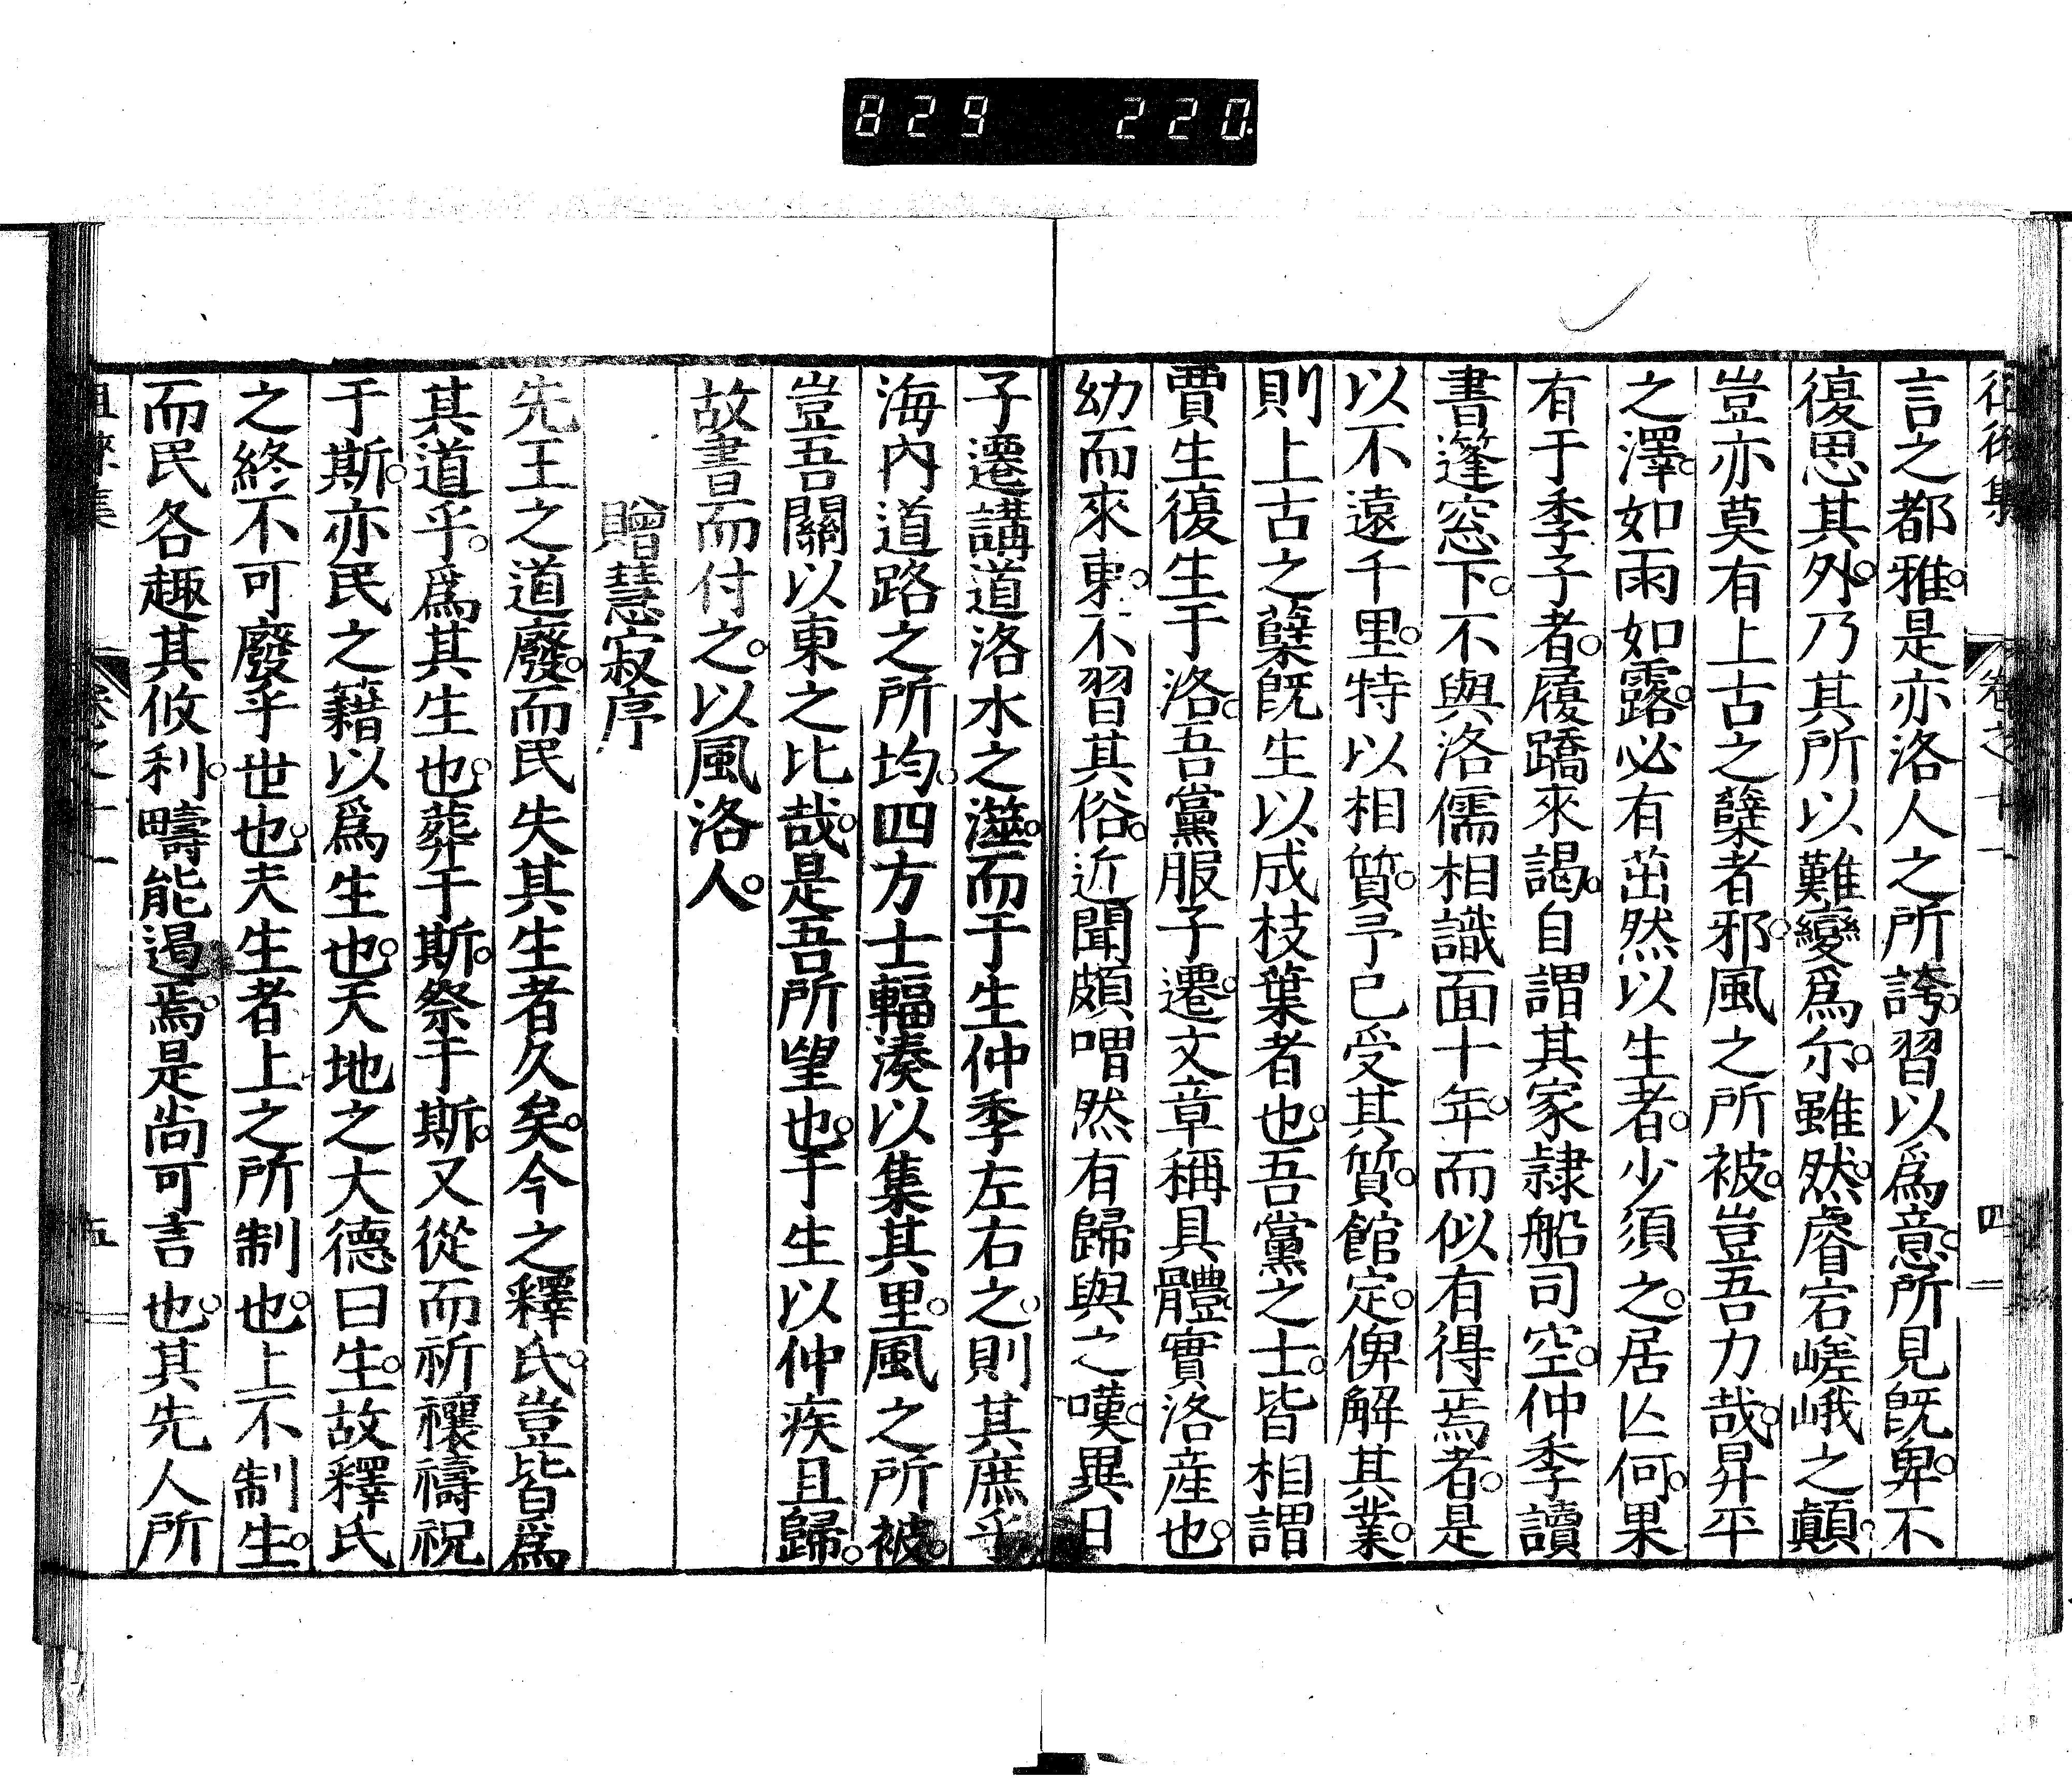 829 220.
卷之十一 四
言之都雅是亦洛人之所誇習以爲意所見既卑不
復思其外乃其所以難變爲尓雖然睿宕嵯峨之顚
豈亦莫有上古之蘖者邪風之所被豈吾力哉昇平
之澤如雨如露必有茁然以生者少須之居亾何果
有于季子者履蹻來謁自謂其家隷船司空仲季讀
書篷窓下不與洛儒相識面十年而似有得焉者是
以不遠千里特以相質予已受其質館定俾解其業
則上古之蘖既生以成枝葉者也吾黨之士皆相謂
賈生復生于洛吾黨服子遷文章稱具體實洛産也
幼而來東不習其俗近聞頗喟然有歸與之嘆異日
子遷講道洛水之澨而于生仲季左右之則其庶乎
海內道路之所均四方士輻湊以集其里風之所被
豈吾關以東之比哉是吾所望也于生以仲疾且歸
故書而付之以風洛人
贈慧寂序
先王之道廢而民失其生者久矣今之釋氏豈皆爲
其道乎爲其生也葬于斯祭于斯又從而祈禳禱祝
于斯亦民之藉以爲生也天地之大德曰生故釋氏
之終不可廢乎世也夫生者上之所制也上不制生
而民各趣其攸利疇能遏焉是尚可言也其先人所
集 卷之十一 五